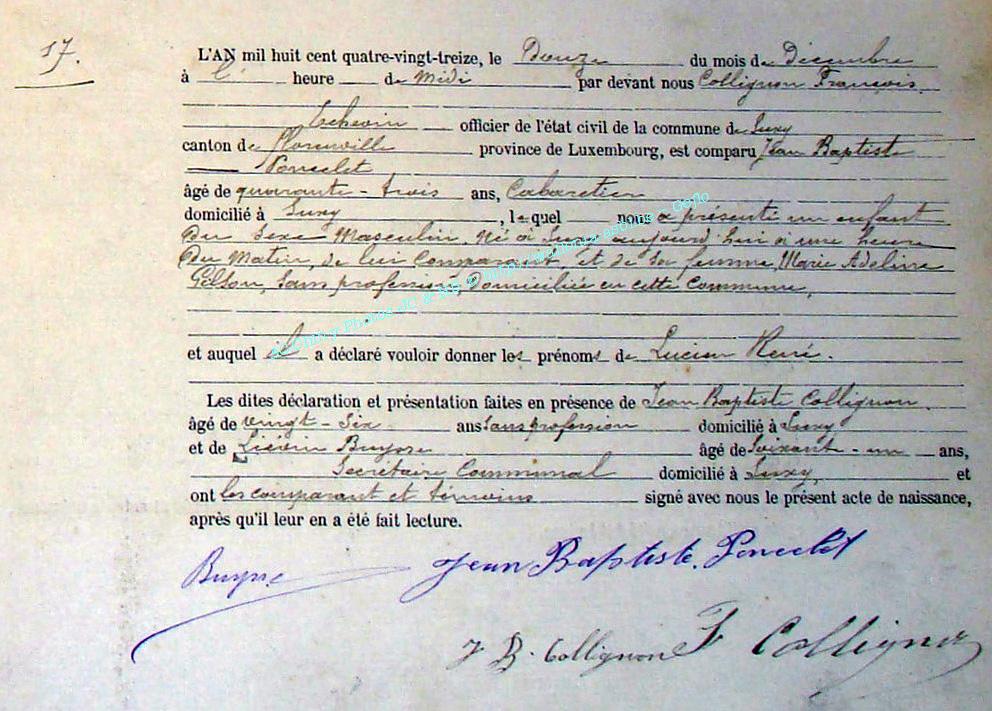 17.
L'AN mil huit cent quatre-vingt-treize, le Douze du mois de Décembre
à l' heure de midi par devant nous Collignon François,
Echevin officier de l'état civil de la commune de Suxy
canton de Florenville province de Luxembourg, est comparu Jean Baptiste
Poncelet
âgé de quarante-trois ans, Cabaretier
domicilié à Suxy, lequel nous a présenté un enfant
du sexe Masculin, Né à Suxy aujourd'hui à une heure
du Matin, de lui comparant et de sa femme, Marie Adeline
Gelson, sans profession, Domiciliée en cette Commune,
et auquel il a déclaré vouloir donner les prénoms de Lucien René.
Les dites déclaration et présentation faites en présence de Jean Baptiste Collignon
âgé de vingt-six ans sans profession domicilié à Suxy
et de Liévin Buysse âgé de Soixante-un ans,
Secrétaire Communal domicilié à Suxy, et
ont les comparant et témoins signé avec nous le présent acte de naissance,
après qu'il leur en a été fait lecture.
Buysse Jean Baptiste Poncelet
J B. Collignon F Collignon